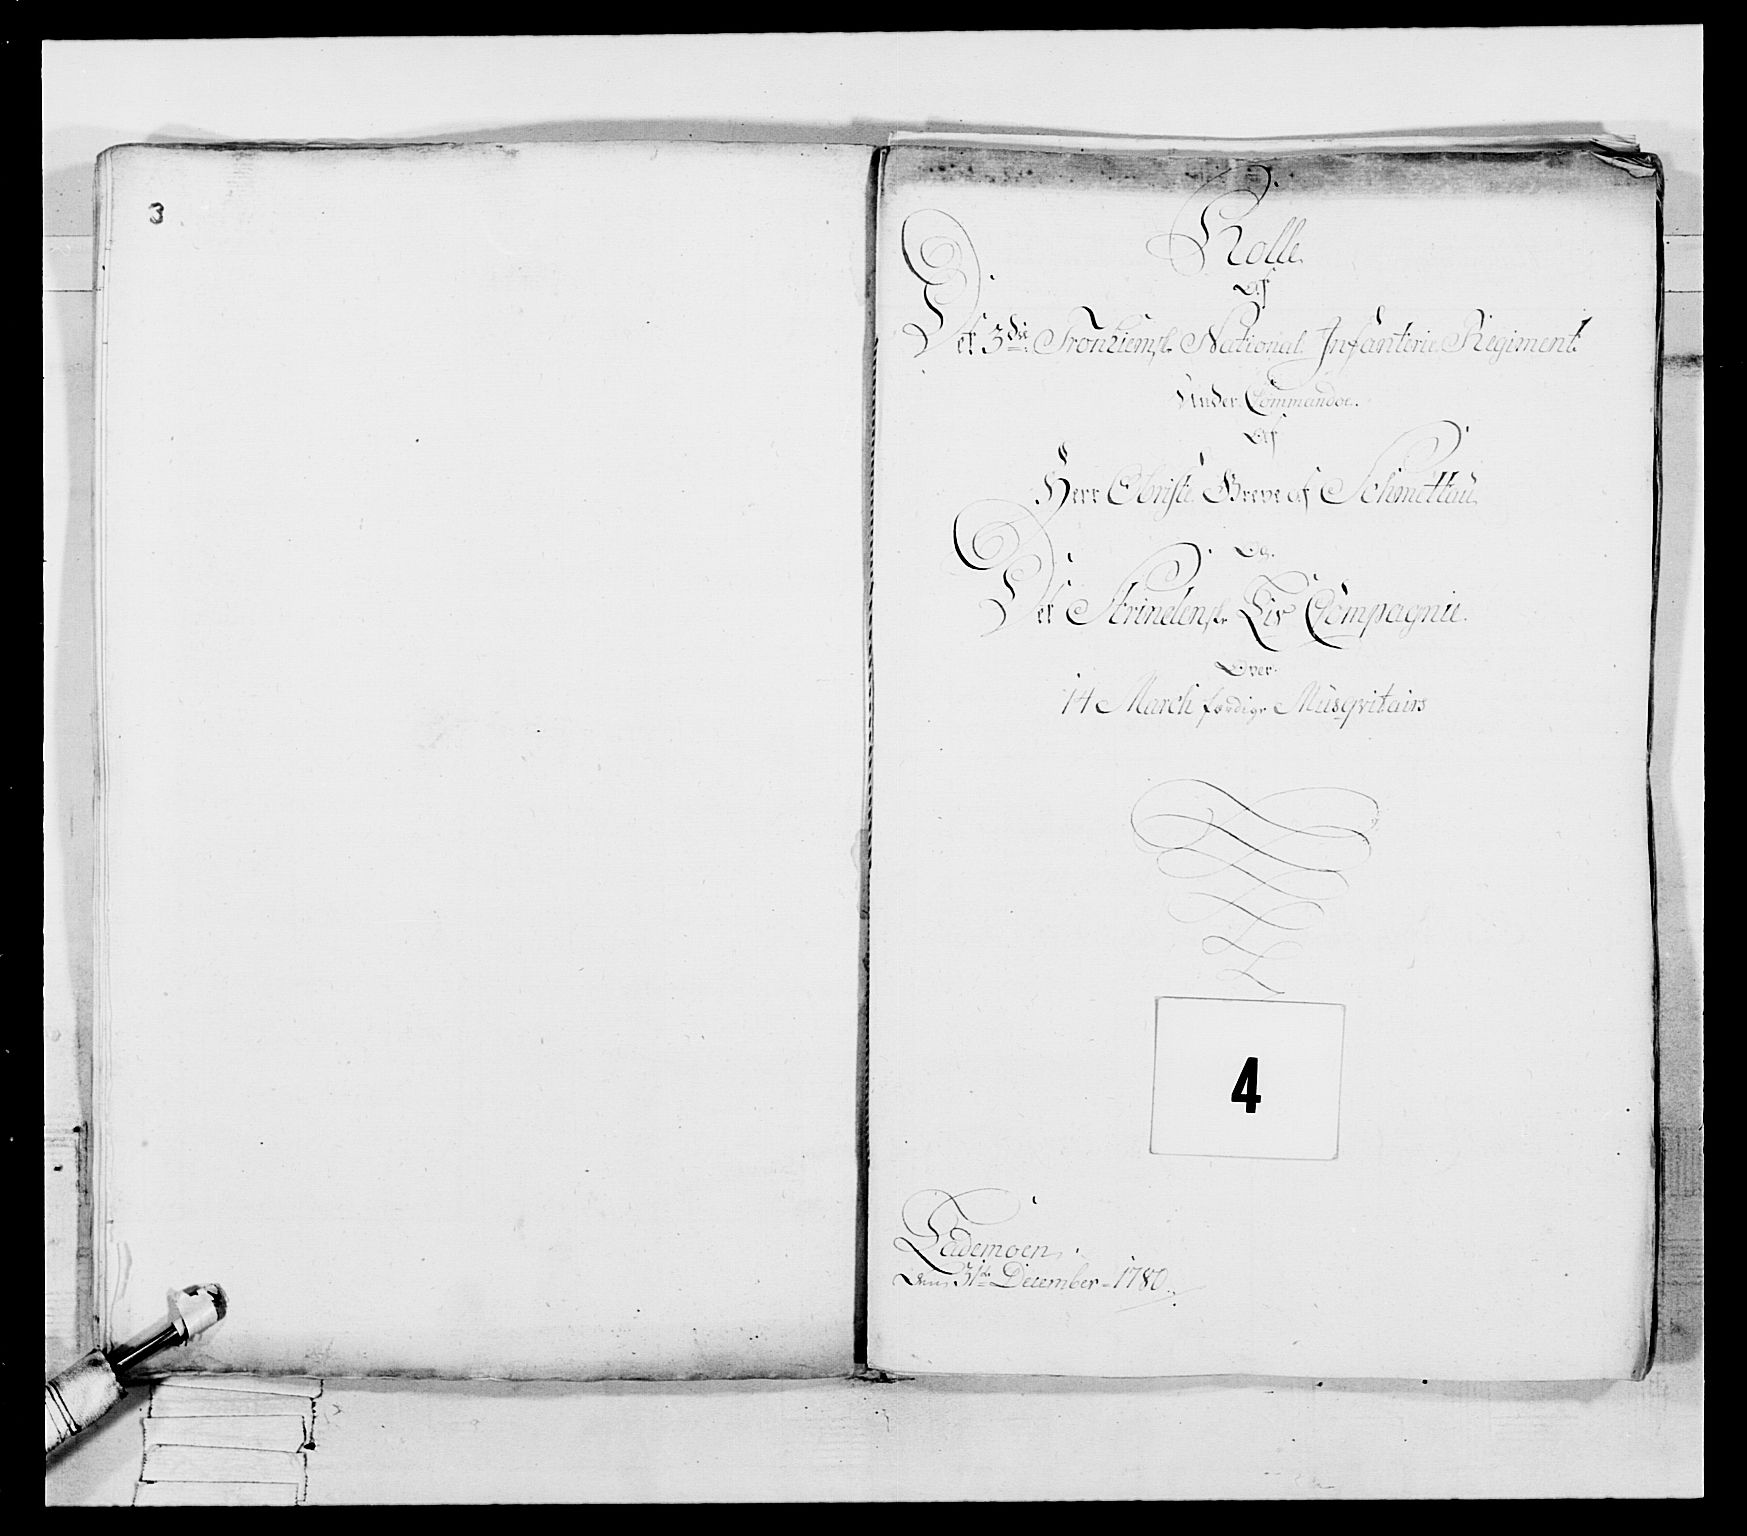 3
Rolle
Af
Det 3die Tronhiemske National Infanterie Regiment
Under Commandoe
Af
Herr Obriste Greve af Schmettau
Og
Det Strindenske Liv Compagnie
Over
14 March færdige Musqvitairs
4
Lademoen
den 31te December 1780